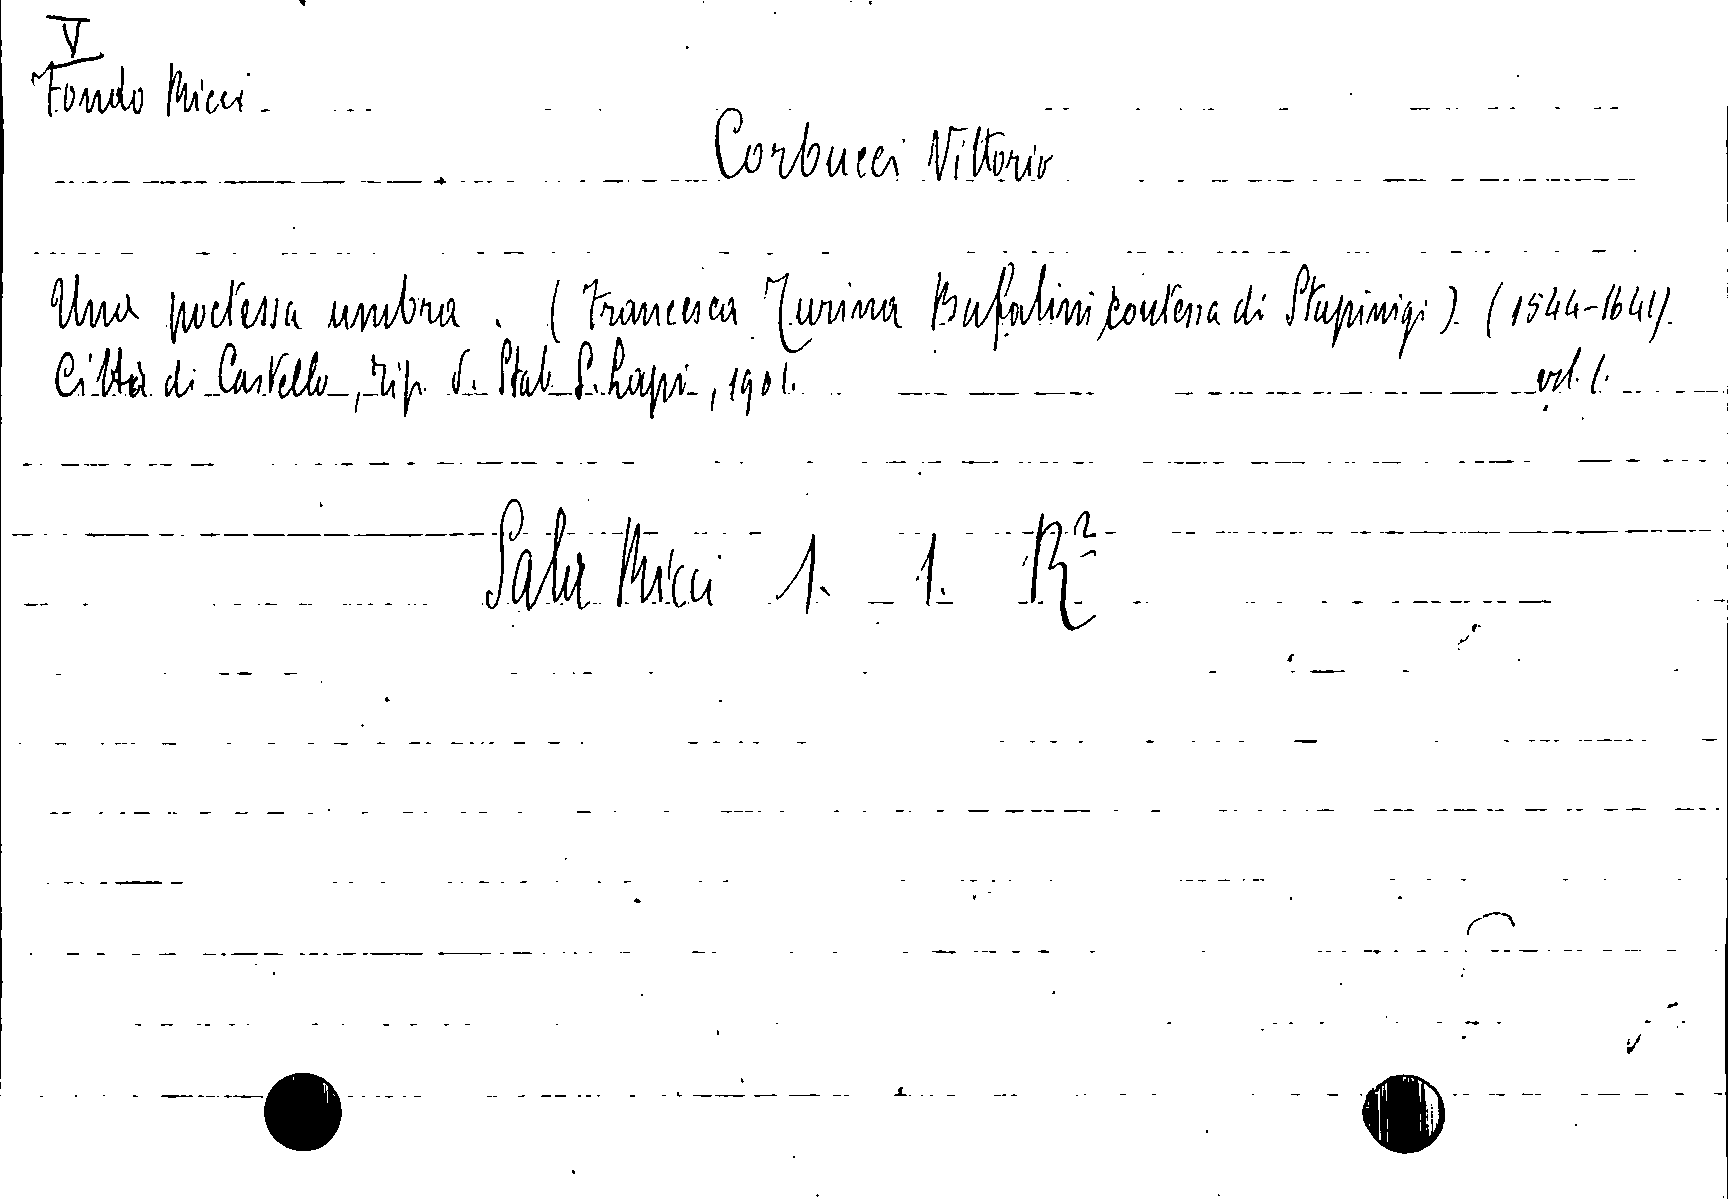 V
Fondo Ricci
Corbucci Vittorio
Una poetessa umbra. (Francesca Turina Bufalini, contessa di Stupinigi). (1544-1641).
Città di Castello, Tip. d. Stab. S. Lapi, 1901. vol. 1.
Sala Ricci 1. 1. R²